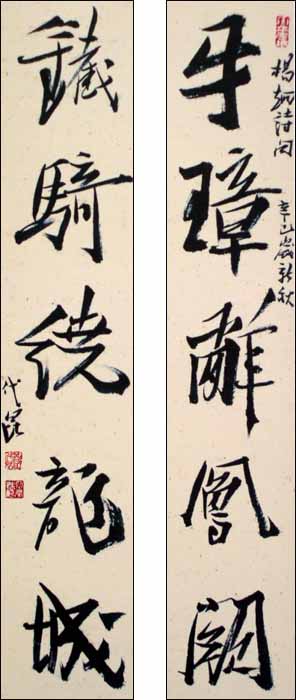 牙璋辭鳳闕
楊炯詩句 辛巳歲新秋
鐵騎繞龍城